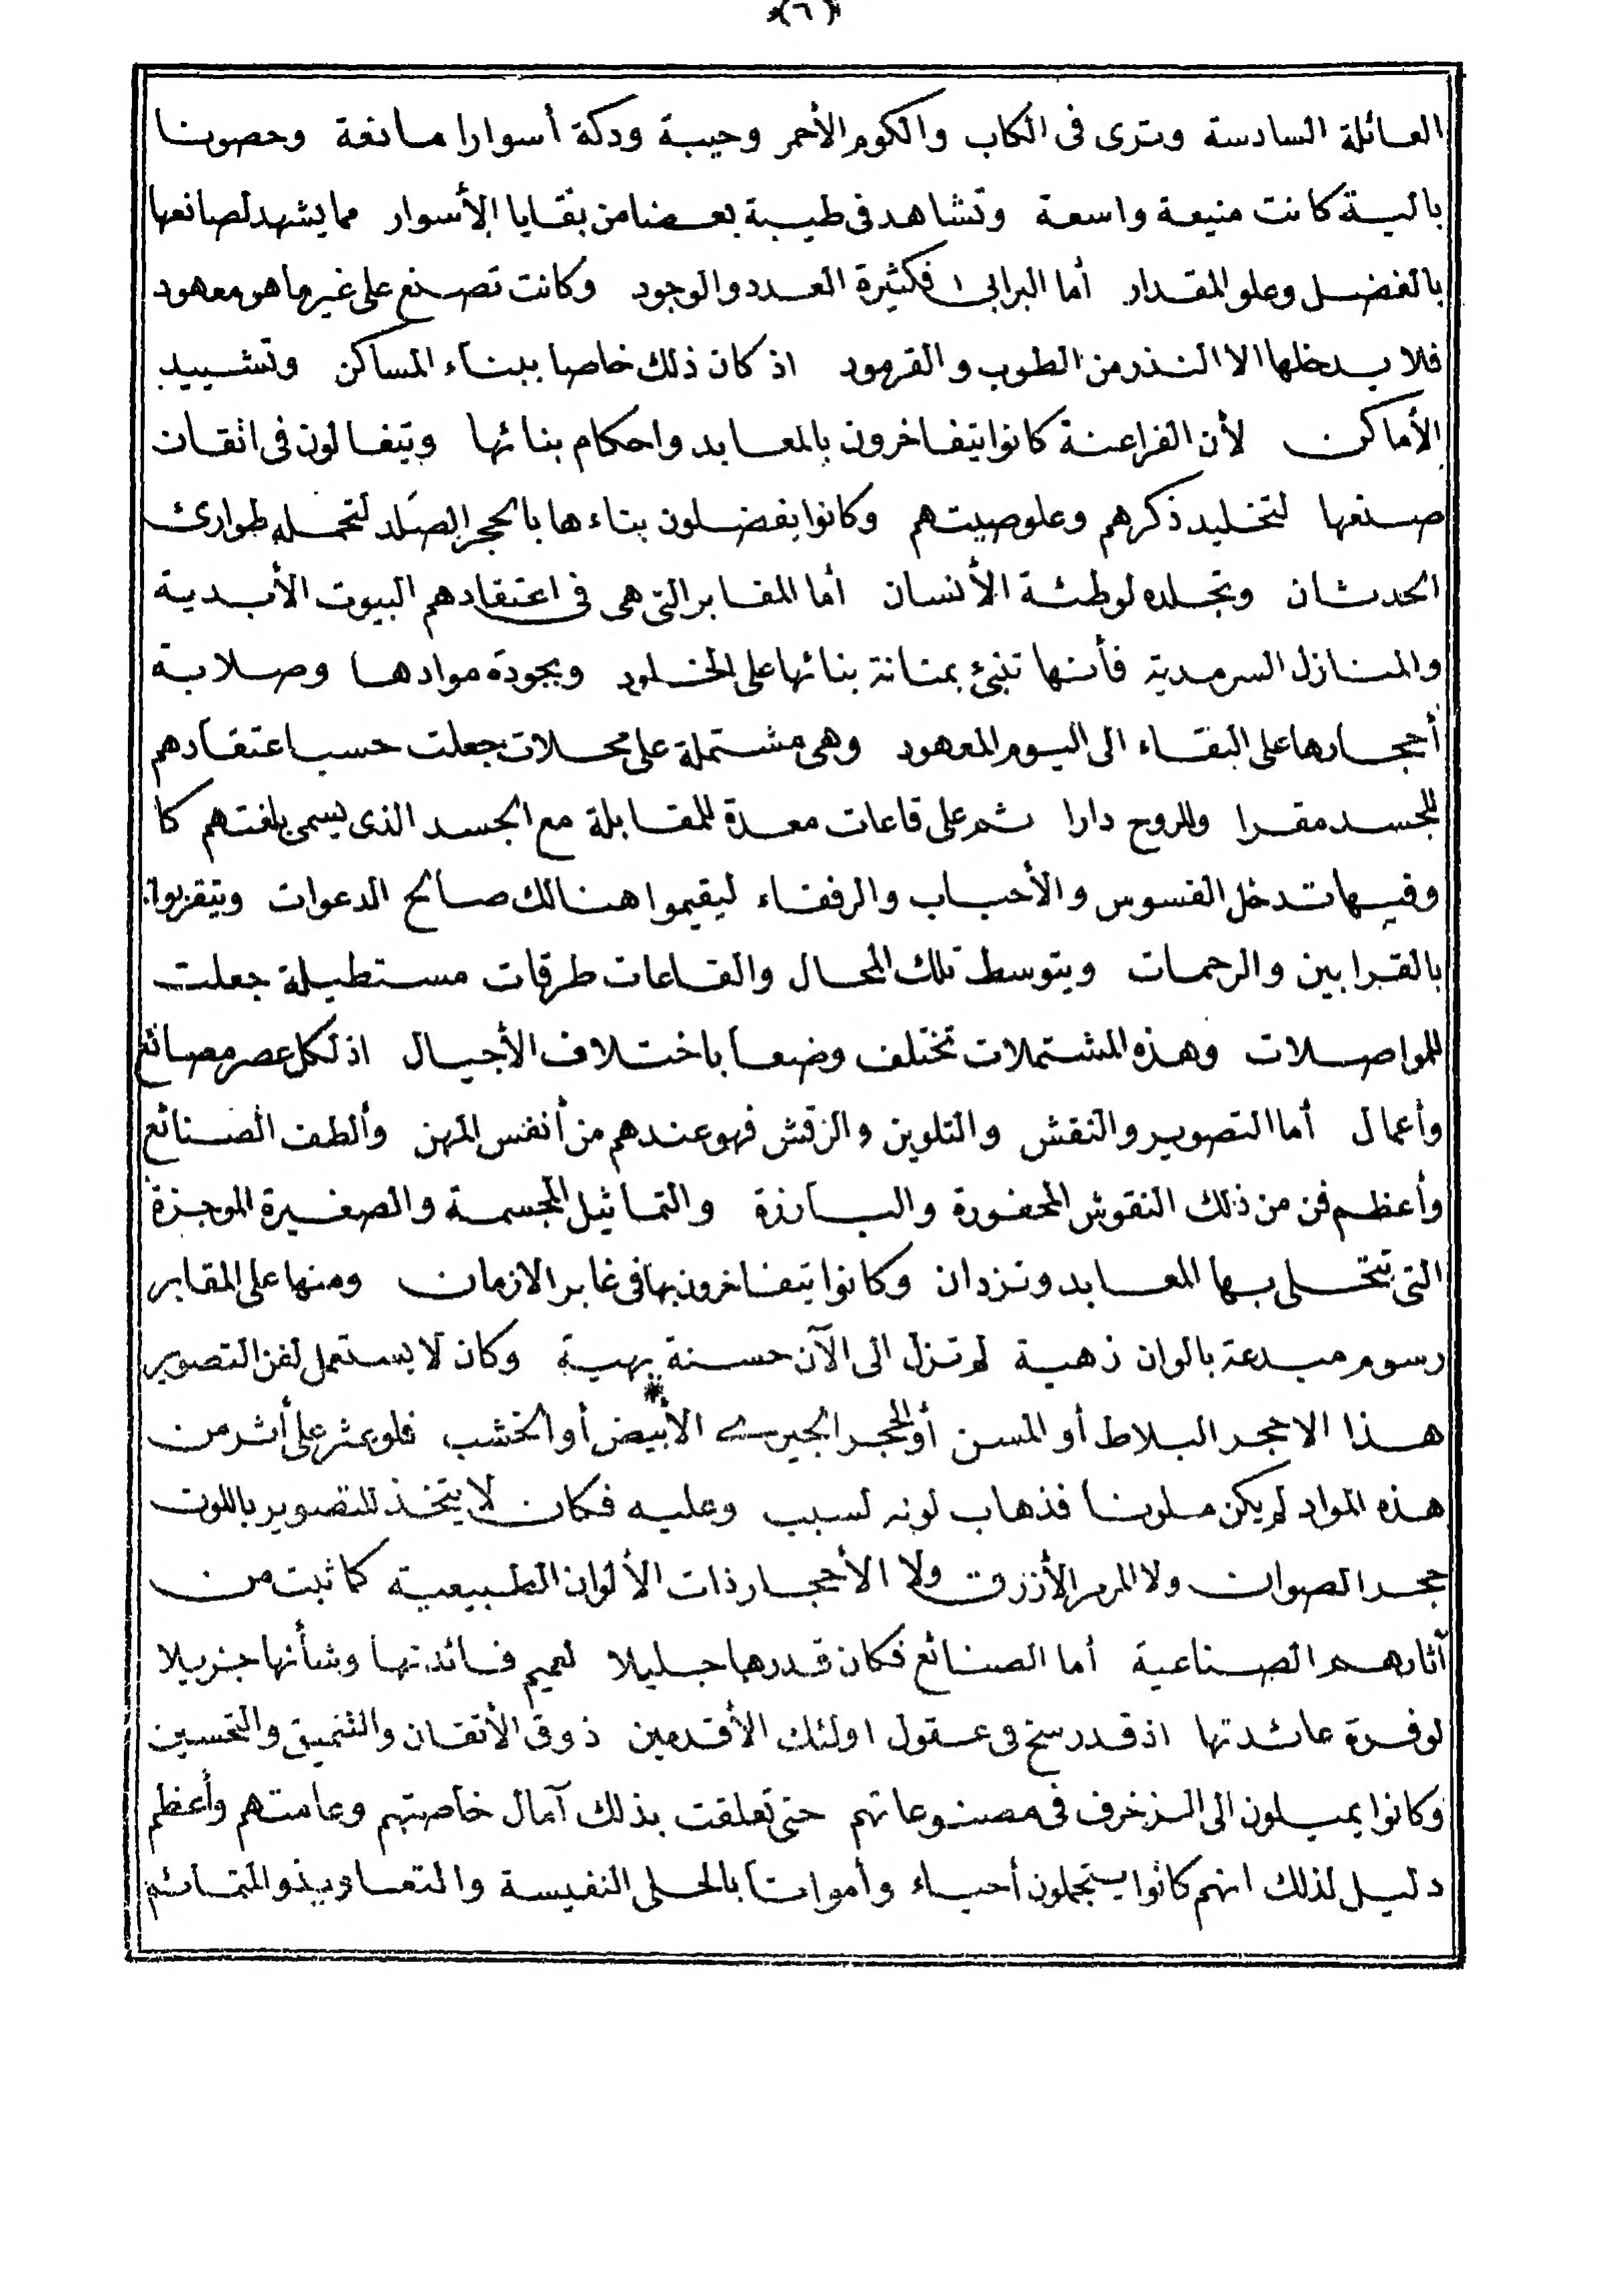 ﴿٦﴾
العائلة السادسة وترى فى الكاب والكوم الأحمر وحيبة ودكة أسوارا مانعة وحصونا
بالية كانت منيعة واسعة وتشاهد فى طيبة بعضا من بقايا الأسوار مما يشهد لصانعها
بالفضل وعلو المقدار أما البرابى ١ فكثيرة العدد والوجود وكانت تصنع على غير ما هو معهود
فلا يدخلها الا النذر من الطوب والقرمود اذ كان ذلك خاصا ببناء المساكن وتشييد
الأماكن لأن الفراعنة كانوا يتفاخرون بالمعابد واحكام بنائها ويتغالون فى اتقان
صنعها لتخليد ذكرهم وعلو صيتهم وكانوا يفضلون بناءها بالحجر الصلد لتحمله طوارئ
الحدثان وتجلده لوطئة الأنسان أما المقابر التى هى فى اعتقادهم البيوت الأبدية
والمنازل السرمدية فأنها تنبئ بمتانة بنائها على الخلود وبجودة موادها وصلابة
أحجارها على البقاء الى اليوم المعهود وهى مشتملة على محلات جعلت حسب اعتقادهم
للجسد مقرا وللروح دارا ثم على قاعات معدة للمقابلة مع الجسد الذى يسمى بلغتهم كا
وفيها تدخل القسوس والأحباب والرفقاء ليقيموا هنالك صالح الدعوات ويتقربوا
بالقرابين والرحمات ويتوسط تلك المحال والقاعات طرقات مستطيلة جعلت
للمواصلات وهذه المشتملات تختلف وضعا باختلاف الأجيال اذ لكل عصر مصانع
وأعمال أما التصوير والنقش والتلوين والزقش فهو عندهم من أنفس المهن وألطف الصنائع
وأعظم فن من ذلك النقوش المحفورة والبارزة والتماثيل المجسمة والصغيرة الموجزة
التى تتحلى بها المعابد وتزدان وكانوا يتفاخرون بها فى غابر الازمان ومنها على المقابر
رسوم مبدعة بالوان ذهبية لم تزل الى الآن حسنة بهية وكان لا يستعمل لفن التصوير
هذا الا حجر البلاط أو المسن أو الحجر الجيرى الأبيض أو الخشب فلو عثر على أثر من
هذه المواد لم يكن ملونا فذهاب لونه لسبب وعليه فكان لا يتخذ للتصوير باللون
حجر الصوان ولا المرمر الأزرق ولا الأحجار ذات الألوان الطبيعية كما ثبت من
آثارهم الصناعية أما الصنائع فكان قدرها جليلا لعميم فائدتها وشأنها جزيلا
لوفرة عائدتها اذ قد رسخ فى عقول اولئك الأقدمين ذوق الأتقان والتنميق والتحسين
وكانوا يميلون الى الزخرف فى مصنوعاتهم حتى تعلقت بذلك آمال خاصتهم وعامتهم وأعظم
دليل لذلك انهم كانوا يستجملون أحياء وأمواتا بالحلى النفيسة والتعاويذ والتمائم